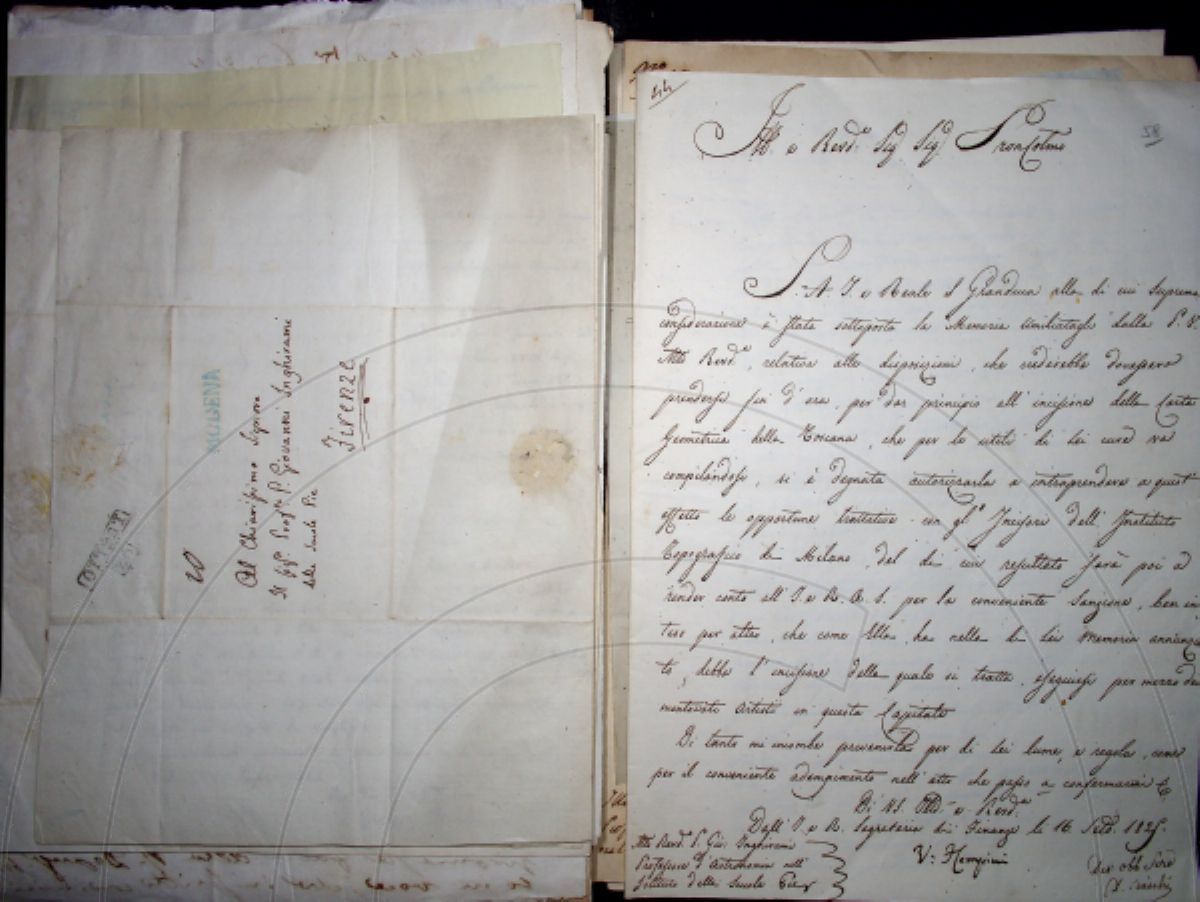 MODENA
20
Al Chiarissimo Signore
Il Sigr. Profre. P. Giovanni Inghirami
delle Scuole Pie
Firenze
44
58
Mto. e Revdo. Sig. Sig. Pron Colmo
S. A. I. e Reale il Granduca alla di cui Suprema
considerazione è stata sottoposta la Memoria umiliatagli dalla P. V.
Mto Revda., relativa alle disposizioni, che crederebbe dovessero
prendersi fin d'ora, per dar principio all'incisione della Carta
Geometrica della Toscana, che per le utili di lei cure va
compilandosi, si è degnata autorizzarla a intraprendere a quest'
effetto le opportune trattative con gl' Incisori dell' Instituto
Topografico di Milano, del di cui resultato sarà poi a
render conto all' I. e R. A. S. per la conveniente sanzione, ben in
teso per altro, che come Ella ha nella di lei Memoria annunzia
to, debba l'incisione della quale si tratta, eseguirsi per mezzo dei
mentovati Artisti in questa Capitale
Di tanto mi incombe prevenirla per di lei lume, e regola, come
per il conveniente adempimento nell' atto che passo a confermarmi
Di VS. e Revda.
Dall' I. e R. Segreteria di Finanze li 16 1825.
Mto Revd. P. Gio. Inghirami
Professore d'Astronomia nell'
Istituto delle Scuole Pie